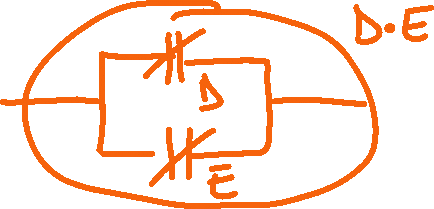 D·E
D
E